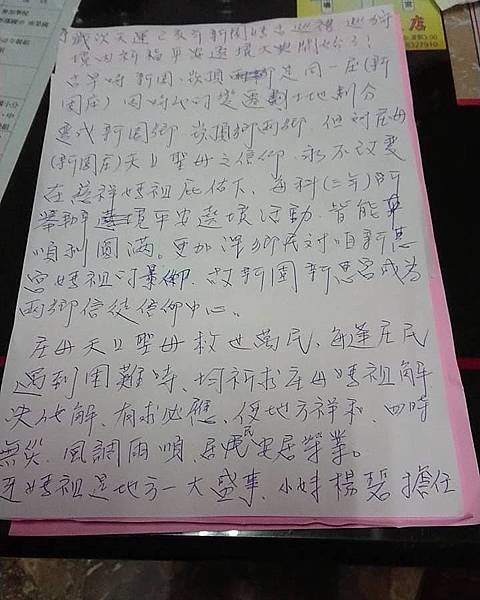 歲次天運己亥年新園媽出巡禮 巡狩
環内祈福平安遶境大典開始了!
古早時新園、崁頂是同一庄(新
園庄) 因時代可變遷劃土地劃分
變成新園鄉 崁頂鄉兩鄉. 但對庄母
(新園庄)天上聖母之信仰. 永不改變
在慈祥媽祖庇佑下、每科(三年)所
舉動平安遶境活動. 皆能
順利圓滿。更加深鄉民對咱新惠
宮媽祖可景仰、故新園新惠宮成為
兩鄉信徒信仰中心。
庄母天上聖母救世萬民、每逢庄民
遇到困難時、均祈求庄母媽祖解
決化解、有求必應、使地方祥和、四時
無災. 風調雨順、居民安居樂業。
媽祖是地方一大盛事、小妹楊碧擔任
店
8327910